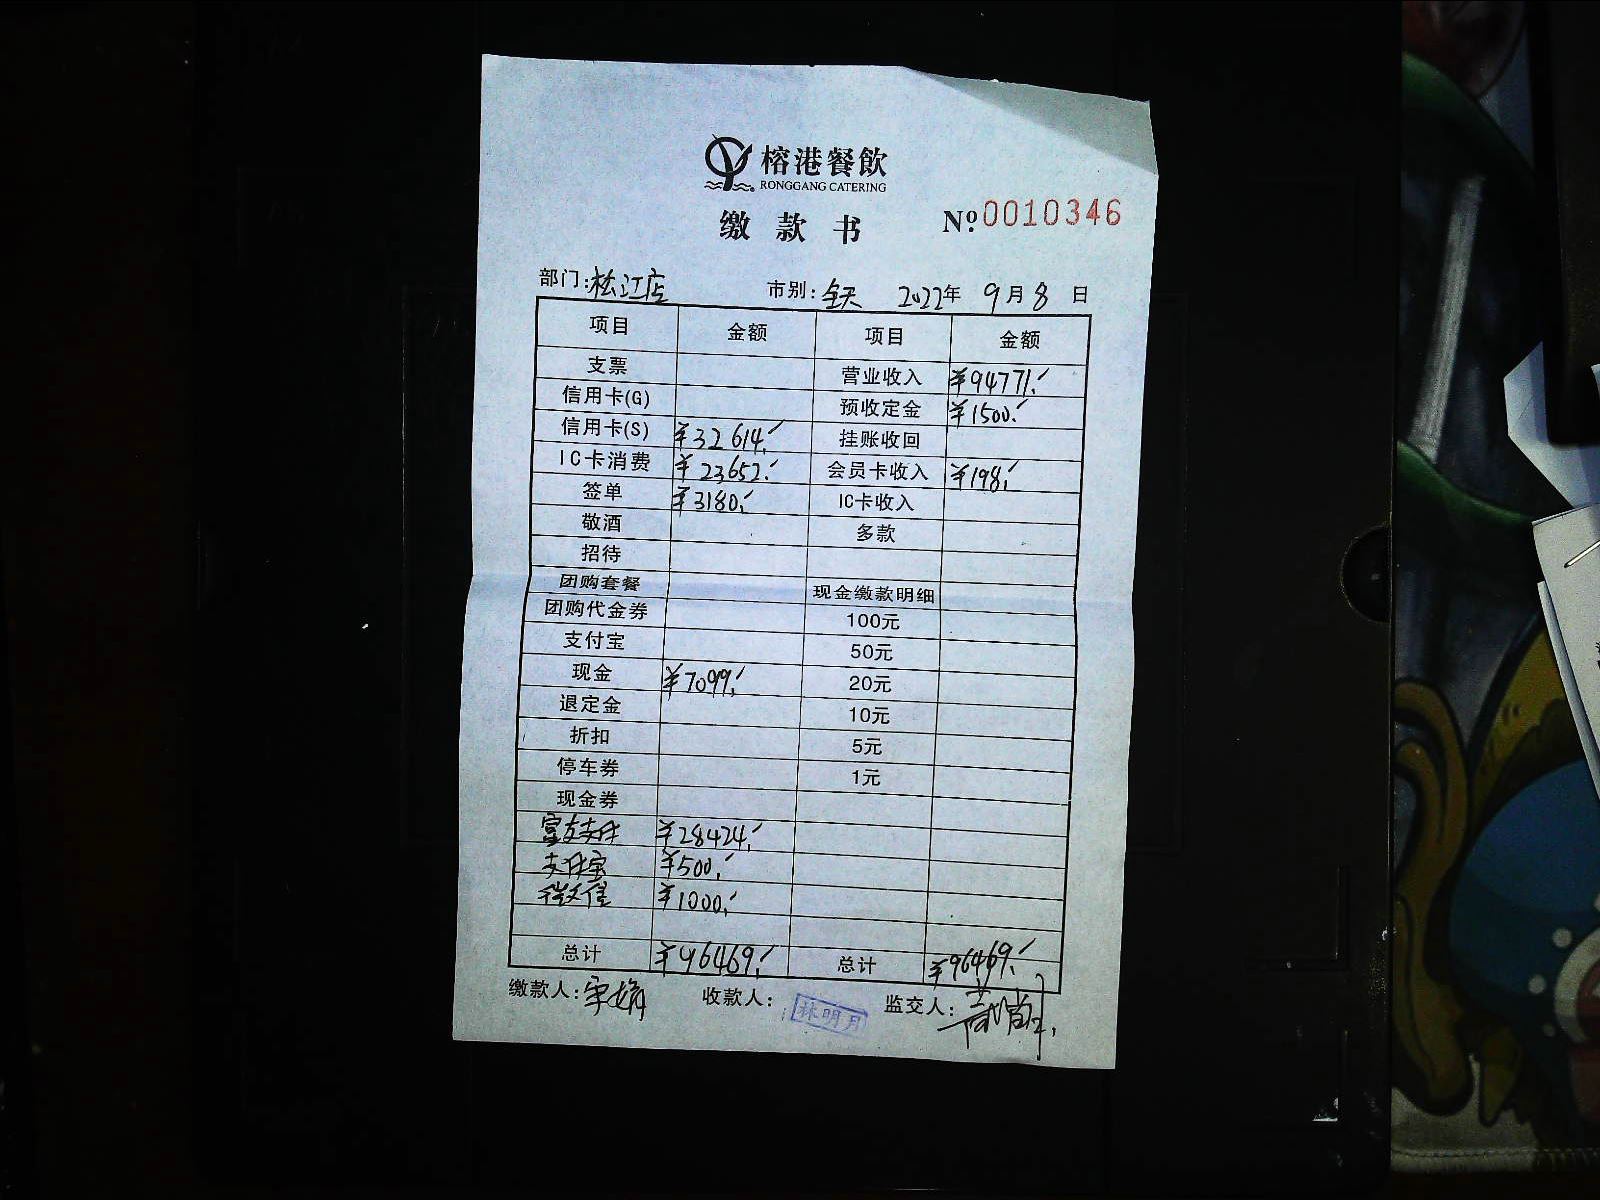 榕港餐飲
RONGGANG CATERING
缴款书 Nº 0010346
部门:松江店 市别:全天 2022年 9月8日
项目 金额 项目 金额
支票 营业收入 ¥94771.
信用卡(G) 预收定金 ¥1500.
信用卡(S) ¥32614. 挂账收回
IC卡消费 ¥23652. 会员卡收入 ¥198.
签单 ¥3180. IC卡收入
敬酒 多款
招待
团购套餐 现金缴款明细
团购代金券 100元
支付宝 50元
现金 ¥7099. 20元
退定金 10元
折扣 5元
停车券 1元
现金券
富友支付 ¥28424.
支付宝 ¥500.
微信 ¥1000.
总计 ¥96469. 总计 ¥96469.
缴款人: 收款人:林明月 监交人: